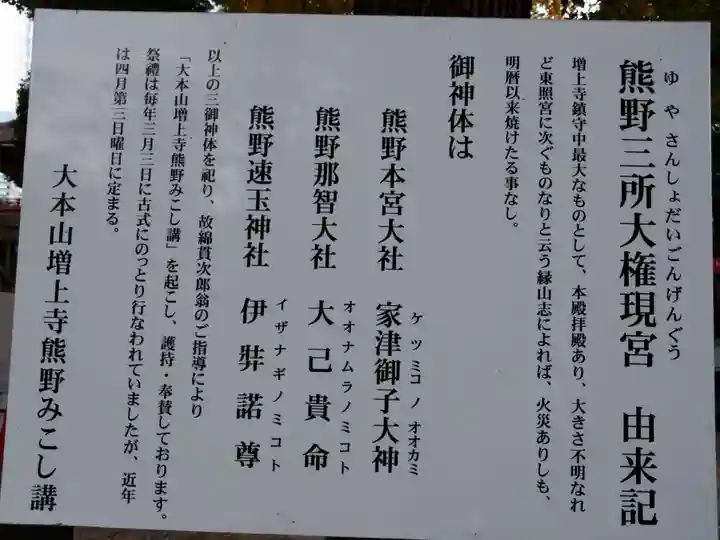 ゆやさんしょだいごんげんぐう
熊野三所大権現宮 由来記
増上寺鎮守中最大なものとして、本殿拝殿あり、大きさ不明なれ
ど東照宮に次ぐものなりと云う縁山志によれば、火災ありしも、
明暦以来焼けたる事なし。
御神体は
熊野本宮大社 家津御子大神
ケツミコノオオカミ
熊野那智大社 大己貴命
オオナムラノミコト
熊野速玉神社 伊弉諾尊
イザナギノミコト
以上の三御神体を祀り、故綿貫次郎翁のご指導により
「大本山増上寺熊野みこし講」を起こし、護持・奉賛しております。
祭禮は毎年三月三日に古式にのっとり行なわれていましたが、近年
は四月第三日曜日に定まる。
大本山増上寺熊野みこし講